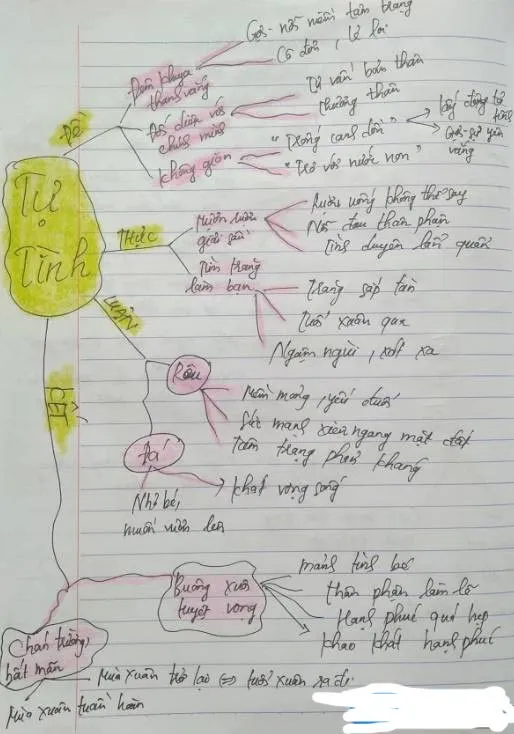 Tự
Tình
ĐỀ
Đêm khuya
thanh vắng
Gợi nỗi niềm tâm trạng
Cô đơn, lẻ loi
Đối diện với
chính mình
Tự vấn bản thân
Thương thân
không gian
"Trống canh dồn"
lấy động tả tĩnh
Gợi sự yên
vắng
"Trơ với nước non"
THỰC
Mượn rượu
giải sầu
Rượu uống không thể say
Nỗi đau thân phận
Tình duyên lẩn quẩn
Tìm trăng
làm bạn
Trăng sắp tàn
Tuổi xuân qua
Ngậm ngùi, xót xa
LUẬN
Rêu
Mềm mỏng, yếu đuối
Sức mạnh xiên ngang mặt đất
Tâm trạng phản kháng
Đá
Nhỏ bé,
muốn vươn lên
khát vọng sống
KẾT
Buông xuôi
tuyệt vọng
mảnh tình bé
thân phận làm lẽ
Hạnh phúc quá hẹp
khao khát hạnh phúc
Chán trường,
bất mãn
Mùa xuân trở lại ⇔ tuổi xuân ra đi
Mùa xuân tuần hoàn